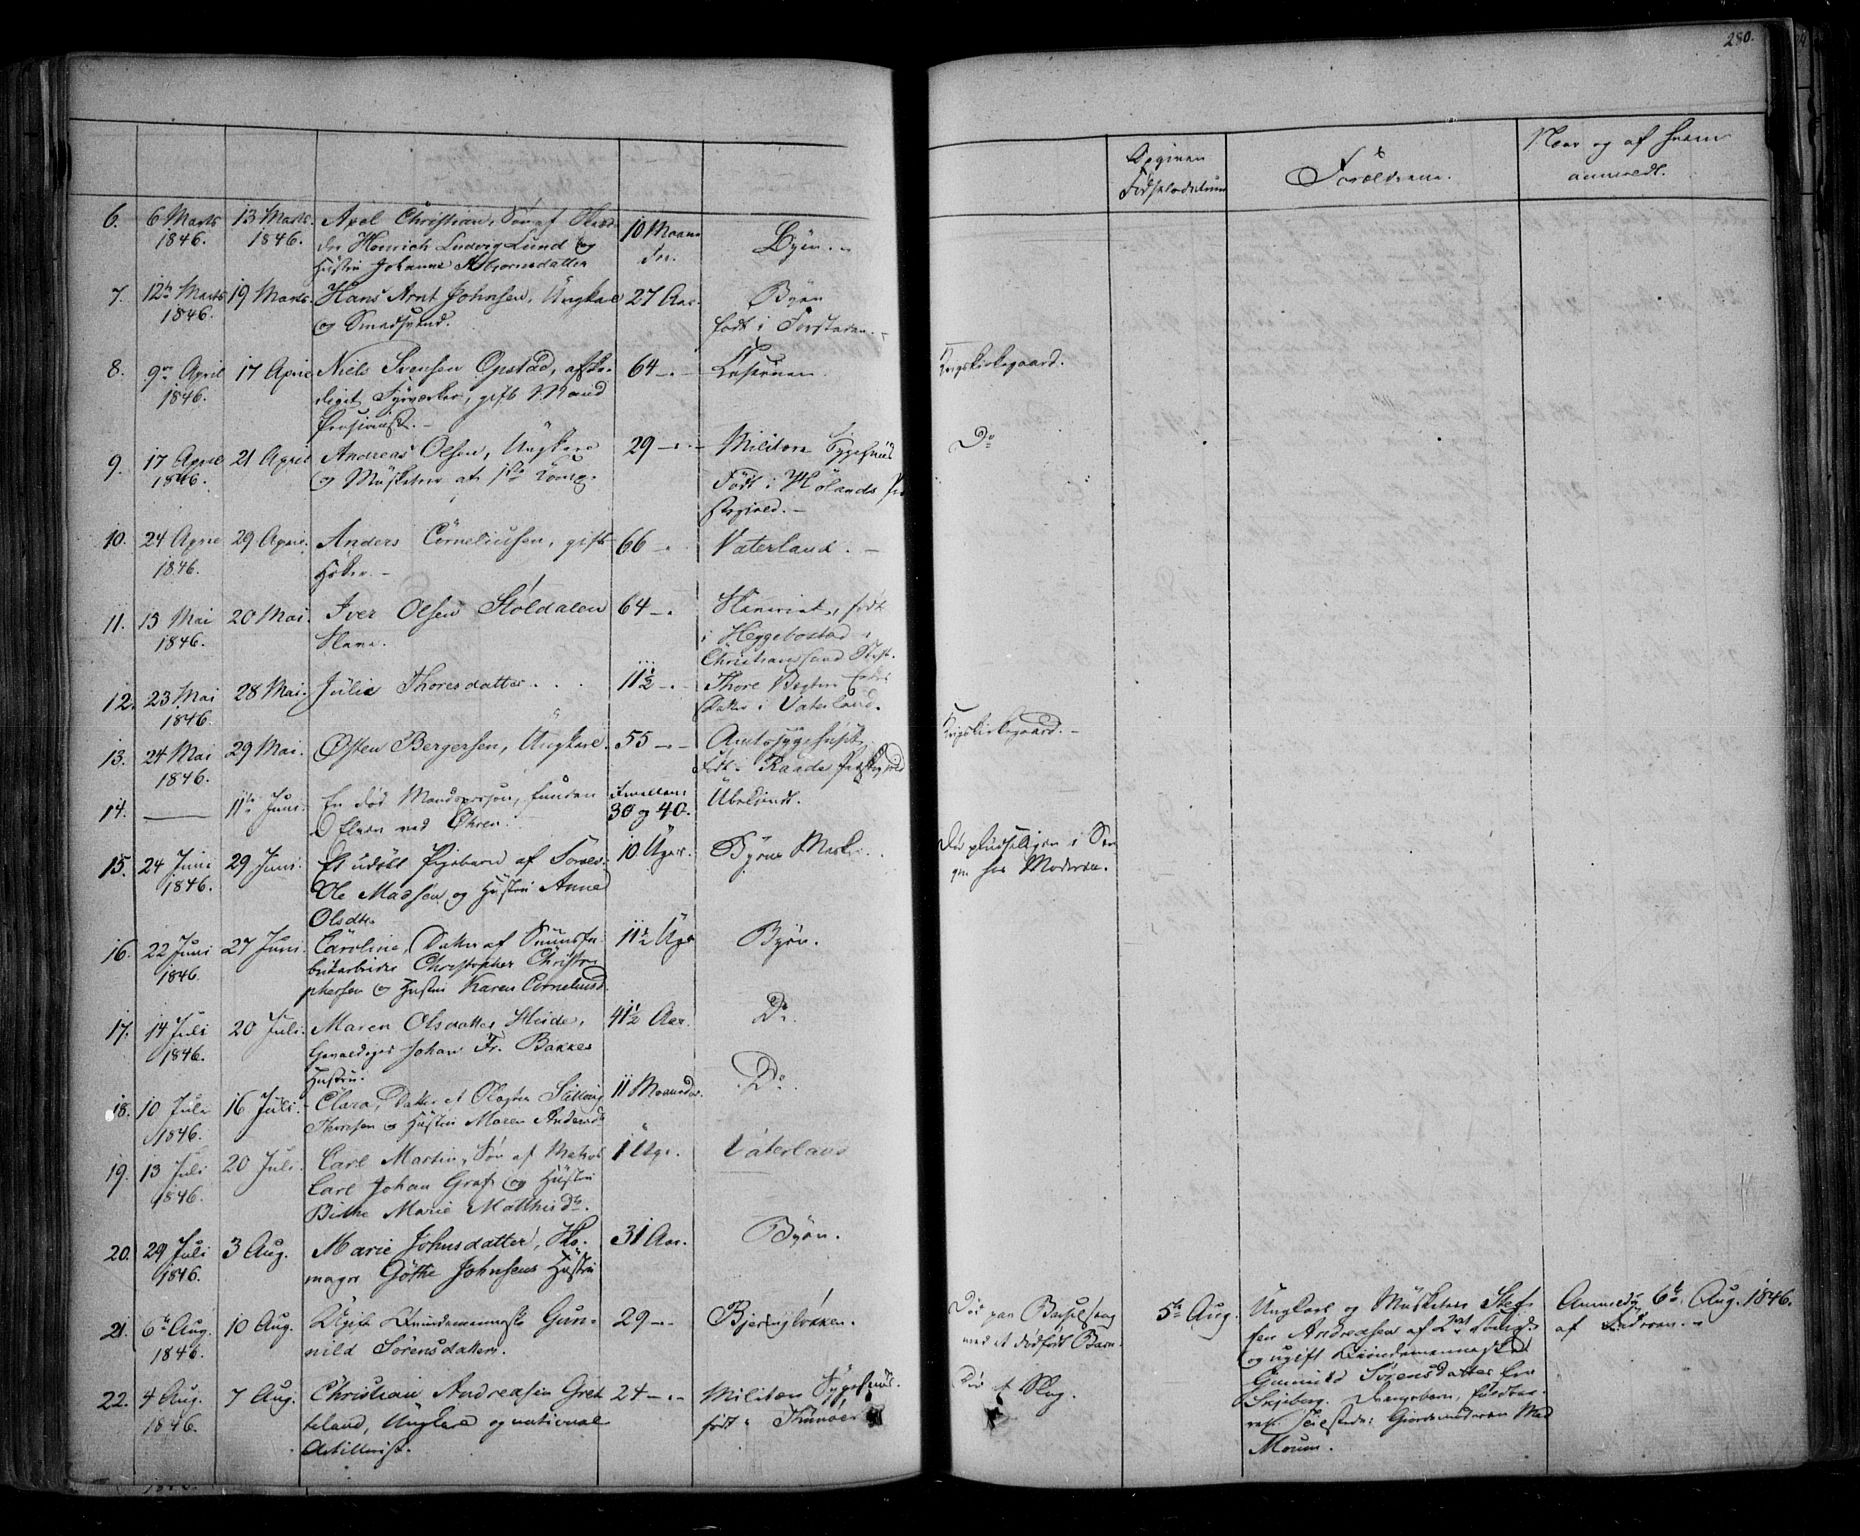 280.
Opgiven
Fødselsdatum
Forældrene.
Naar og af hvem
anmeldt.
6. 6 Marts 1846. 13 Marts 1846. Axel Christian, Søn af
Henrich Ludvig Lund og
Hustru Johanne Asbjørnsdatter
10 Maane
der.
Byen.
7. 12te Marts 1846. 19 Marts. Hans Arnt Johnsen, Ungkarl
og Smedsvend.
27 Aar.
Byen
født i Forstaden.
8. 9de April 1846. 17 April Niels Svensen Opstad, afske-
diget Fyrværker, gift Mand
Pensionist.
64
Casernen.
Krigskirkegaard.
9. 17 April 1846. 21 April Andreas Olsen, Ungkarl
og Musketeer af
29
Militære Sygehuus
Født i Hølands
stegjeld.
Do
10. 24 April 1846. 29 April. Anders Corneliusen, gift
Høker.
66
Vaterland.
11. 13 Mai 1846. 20 Mai. Iver Olsen Stoldalen
Slave.
64
Slaveriet, født
i Heggebostad
Christianssand Stift.
12. 23 Mai 1846. 28 Mai. Julie Thoresdatter
11½
Thore
Datter i Vaterland.
13. 24 Mai 1846. 29 Mai. Østen Bergersen, Ungkarl.
55
Amtssygehuset
født i Raade Præstegjeld
Krigskirkegaard.
14. 11te Juni. En død Mandsperson, funden
i Elven ved Øhren.
imellem
30 og 40.
Ubekjendt.
15. 24 Juni 1846. 29 Juni. Et udøbt Pigebarn af
Ole Madsen og Hustru Anne
Olsdtr.
10 Uger.
Byens Mark.
Død pludseligen i Sen-
gen hos Moderen.
16. 22 Juni 1846. 27 Juni. Caroline, Datter af
Christopher Christo-
phersen og Hustru Karen Corneliusd.
11½ Uge
Byen.
17. 14 Juli 1846. 20 Juli. Maren Olsdatter Heide,
Gevaldiger Johan Fr. Bakkes
Hustru.
41½ Aar.
Do.
18. 10 Juli 1846. 16 Juli. Clara, Datter af
Thoresen og Hustru Maren Andersd.
11 Maaneder.
Do.
19. 13 Juli 1846. 20 Juli. Carl Martin, Søn af
Carl Johan Graf og Hustru
Bithe Marie Matthisdr.
1 Uge.
Vaterland
20. 29 Juli 1846. 3 Aug. Marie Johnsdatter, Sko-
mager Göthe Johnsens Hustru
31 Aar.
Byen.
21. 6te Aug. 1846. 10 Aug. Ugift Qvindemenneske Gun-
nild Sörensdatter.
29
Bjerringløkken.
Død paa Barselseng
med et dødfødt Barn.
5te Aug.
Ungkarl og Musketeer Stef-
fen Andreasen af
og ugift Qvindemenneske
Gunnild Sörensdatter fra
Skjeberg.
Gjordemoderen Mad
Moum.
Anmeldt 6te Aug. 1846.
af Faderen.
22. 4 Aug. 1846. 7 Aug. Christian Andreasen Gret-
teland, Ungkarl og national
Artillerist.
24
Militær Sygehuus.
født i Thunöe
Død af Slag.